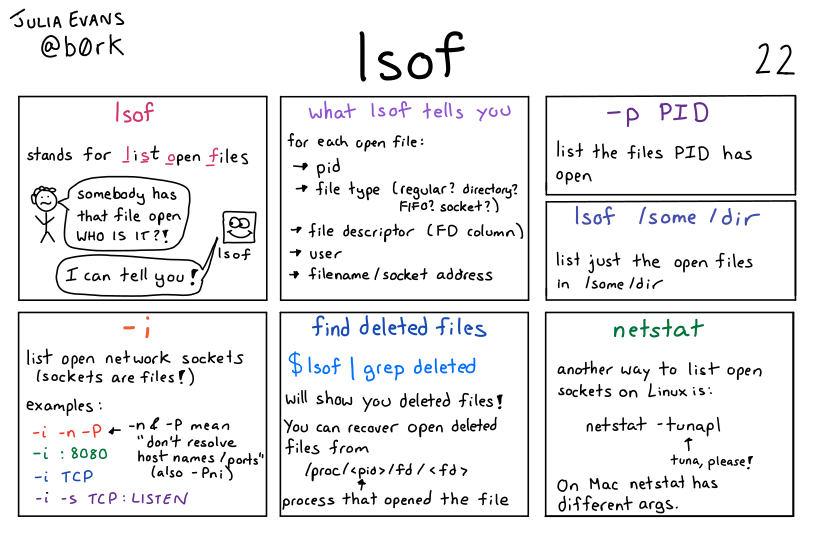 JULIA EVANS
@b0rk
lsof
22
lsof
stands for list open files
somebody has
that file open
WHO IS IT?!
lsof
I can tell you!
what lsof tells you
for each open file:
→ pid
→ file type (regular? directory?
FIFO? socket?)
→ file descriptor (FD column)
→ user
→ filename/socket address
-p PID
list the files PID has
open
lsof /some/dir
list just the open files
in /some/dir
-i
list open network sockets
(sockets are files!)
examples:
-i -n -P ← -n & -P mean
"don't resolve
host names/ports"
(also -Pni)
-i :8080
-i TCP
-i -s TCP:LISTEN
find deleted files
$ lsof | grep deleted
will show you deleted files!
You can recover open deleted
files from
/proc/<pid>/fd/<fd>
process that opened the file
netstat
another way to list open
sockets on Linux is:
netstat -tunapl
tuna, please!
On Mac netstat has
different args.